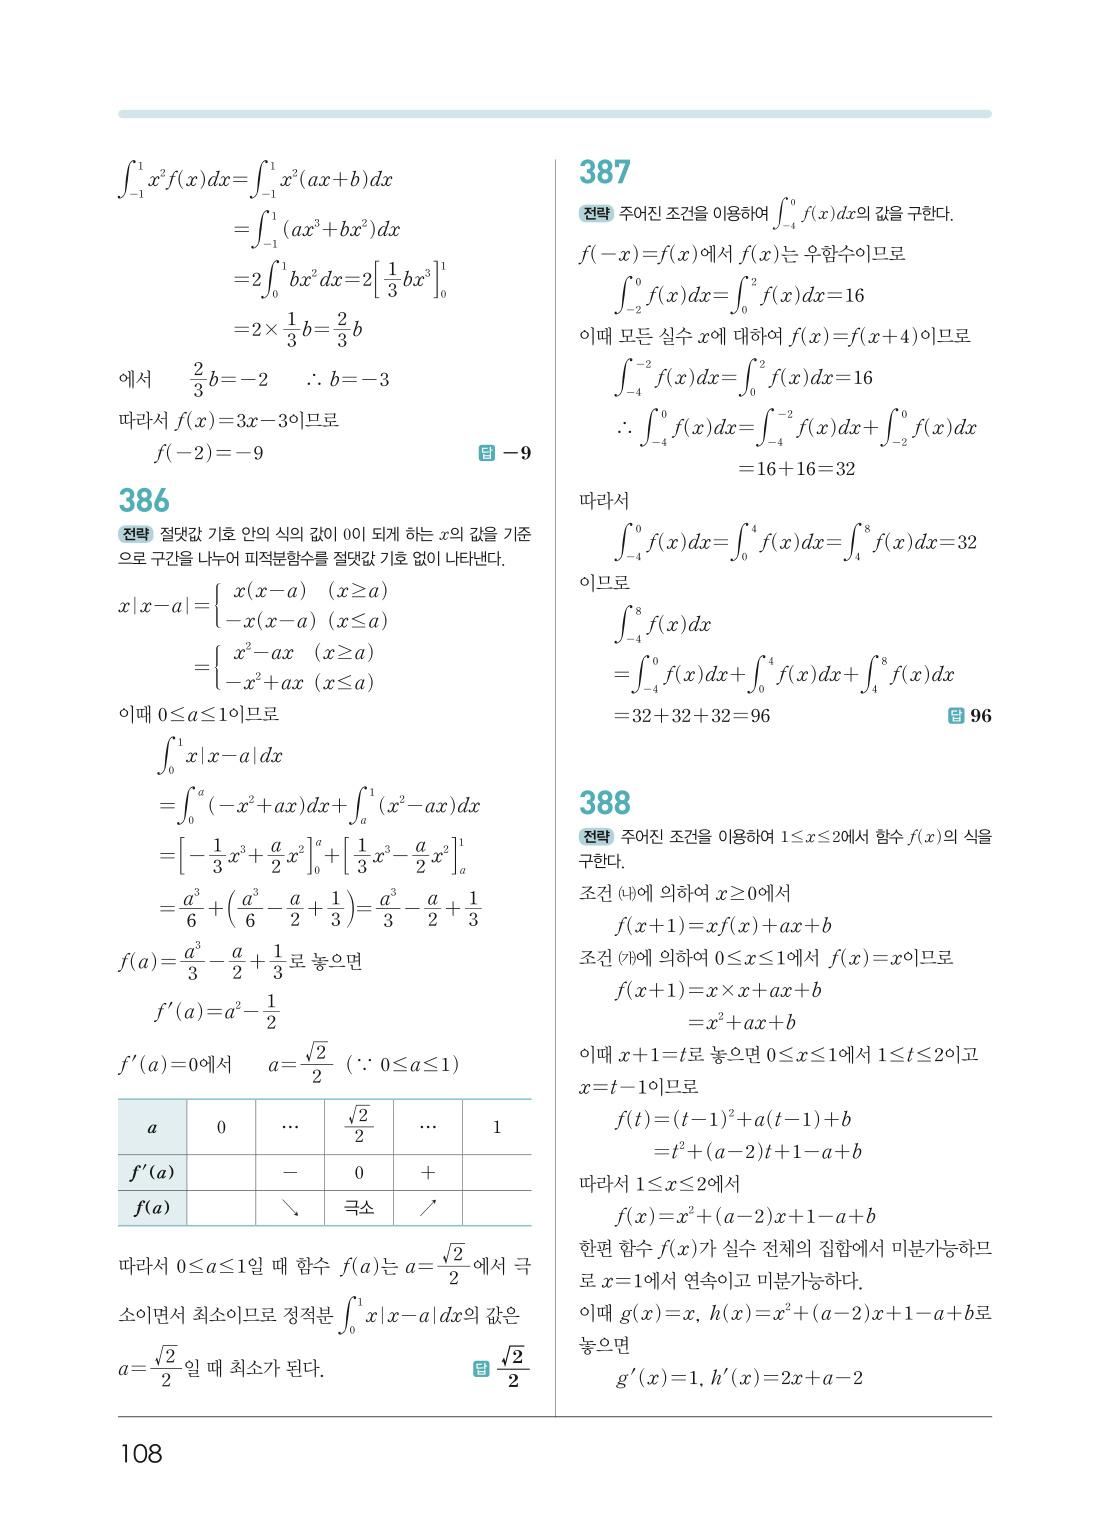 ∫_{-1}^{1} x²f(x)dx=∫_{-1}^{1} x²(ax+b)dx
=∫_{-1}^{1} (ax³+bx²)dx
=2∫_{0}^{1} bx²dx=2[1/3 bx³]_{0}^{1}
=2×1/3 b=2/3 b
에서 2/3 b=-2 ∴ b=-3
따라서 f(x)=3x-3이므로
f(-2)=-9 답 -9
386
전략 절댓값 기호 안의 식의 값이 0이 되게 하는 x의 값을 기준
으로 구간을 나누어 피적분함수를 절댓값 기호 없이 나타낸다.
x|x-a|={ x(x-a) (x≥a)
-x(x-a) (x≤a)
={ x²-ax (x≥a)
-x²+ax (x≤a)
이때 0≤a≤1이므로
∫_{0}^{1} x|x-a|dx
=∫_{0}^{a} (-x²+ax)dx+∫_{a}^{1} (x²-ax)dx
=[-1/3 x³+a/2 x²]_{0}^{a}+[1/3 x³-a/2 x²]_{a}^{1}
=a³/6+(a³/6-a/2+1/3)=a³/3-a/2+1/3
f(a)=a³/3-a/2+1/3로 놓으면
f′(a)=a²-1/2
f′(a)=0에서 a=√2/2 (∵ 0≤a≤1)
a 0 … √2/2 … 1
f′(a) - 0 +
f(a) ↘ 극소 ↗
따라서 0≤a≤1일 때 함수 f(a)는 a=√2/2에서 극
소이면서 최소이므로 정적분 ∫_{0}^{1} x|x-a|dx의 값은
a=√2/2일 때 최소가 된다. 답 √2/2
387
전략 주어진 조건을 이용하여 ∫_{-4}^{0} f(x)dx의 값을 구한다.
f(-x)=f(x)에서 f(x)는 우함수이므로
∫_{-2}^{0} f(x)dx=∫_{0}^{2} f(x)dx=16
이때 모든 실수 x에 대하여 f(x)=f(x+4)이므로
∫_{-4}^{-2} f(x)dx=∫_{0}^{2} f(x)dx=16
∴ ∫_{-4}^{0} f(x)dx=∫_{-4}^{-2} f(x)dx+∫_{-2}^{0} f(x)dx
=16+16=32
따라서
∫_{-4}^{0} f(x)dx=∫_{0}^{4} f(x)dx=∫_{4}^{8} f(x)dx=32
이므로
∫_{-4}^{8} f(x)dx
=∫_{-4}^{0} f(x)dx+∫_{0}^{4} f(x)dx+∫_{4}^{8} f(x)dx
=32+32+32=96 답 96
388
전략 주어진 조건을 이용하여 1≤x≤2에서 함수 f(x)의 식을
구한다.
조건 ㈏에 의하여 x≥0에서
f(x+1)=xf(x)+ax+b
조건 ㈎에 의하여 0≤x≤1에서 f(x)=x이므로
f(x+1)=x×x+ax+b
=x²+ax+b
이때 x+1=t로 놓으면 0≤x≤1에서 1≤t≤2이고
x=t-1이므로
f(t)=(t-1)²+a(t-1)+b
=t²+(a-2)t+1-a+b
따라서 1≤x≤2에서
f(x)=x²+(a-2)x+1-a+b
한편 함수 f(x)가 실수 전체의 집합에서 미분가능하므
로 x=1에서 연속이고 미분가능하다.
이때 g(x)=x, h(x)=x²+(a-2)x+1-a+b로
놓으면
g′(x)=1, h′(x)=2x+a-2
108